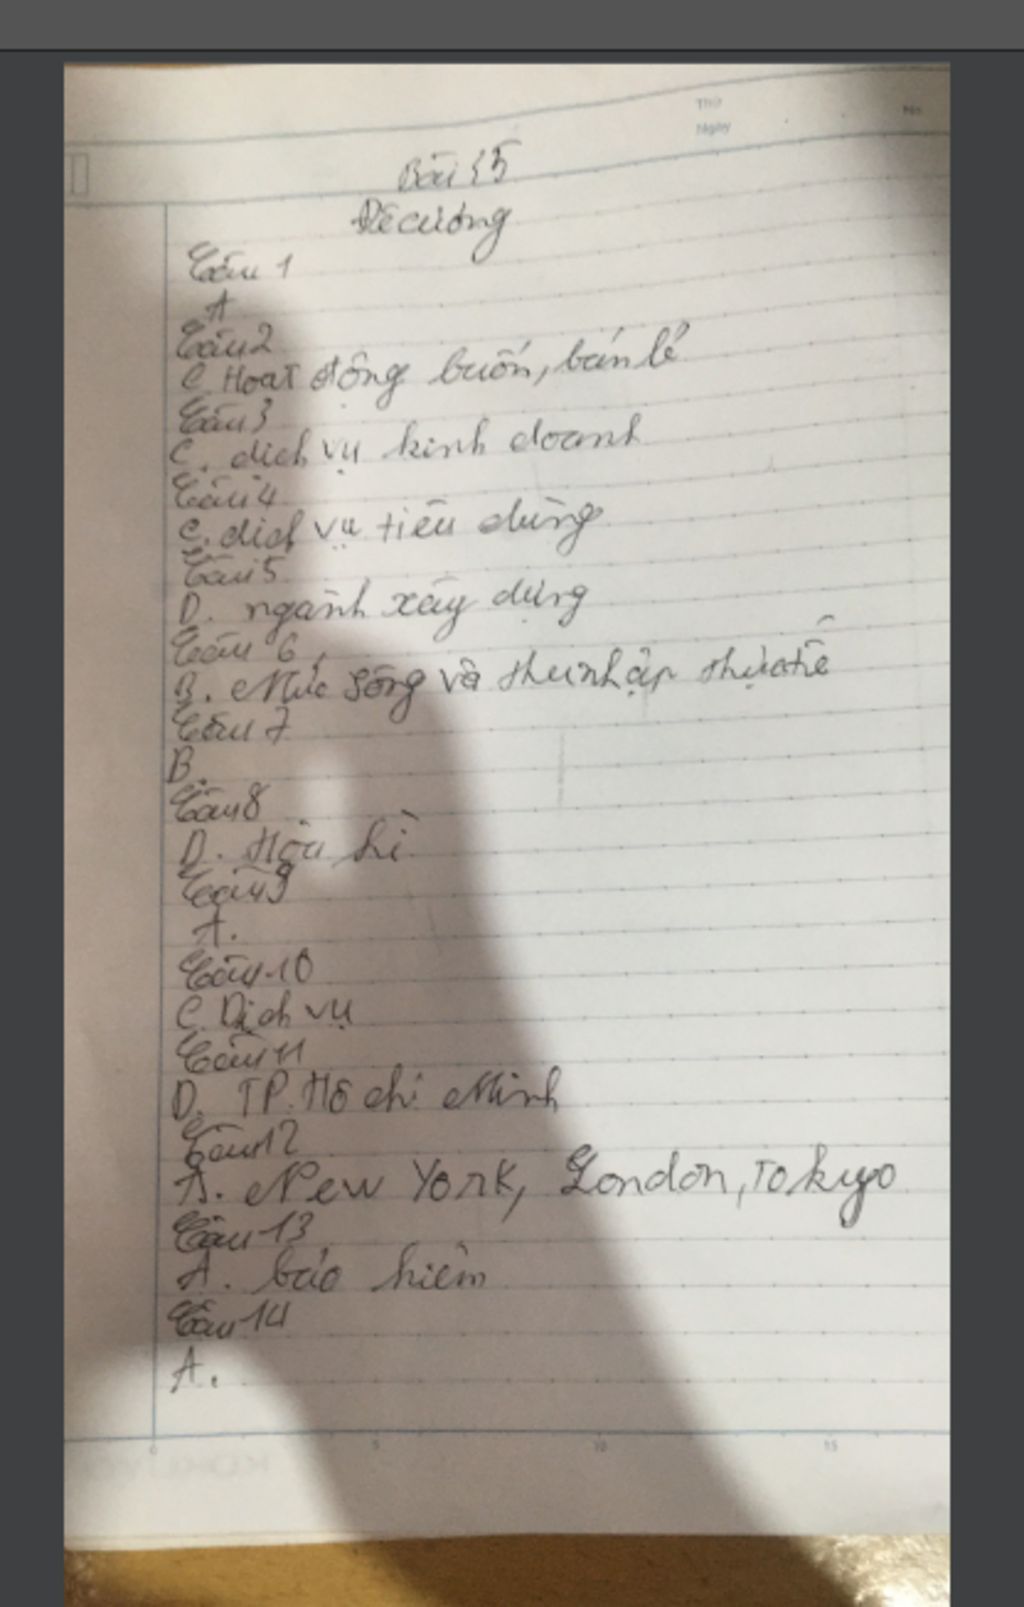 Thứ
No.
Ngày
Bài 35
Đề cương
Câu 1
A
Câu 2
C. Hoạt động buôn, bán lẻ
Câu 3
C. dịch vụ kinh doanh
Câu 4
C. dịch vụ tiêu dùng
Câu 5
D. ngành xây dựng
Câu 6
B. Mức sống và thu nhập thực tế
Câu 7
B.
Câu 8
D. Hoa kì
Câu 9
A.
Câu 10
C. Dịch vụ
Câu 11
D. TP. Hồ chí Minh
Câu 12
A. New York, London, Tokyo
Câu 13
A. bảo hiểm
Câu 14
A.
0 5 10 15